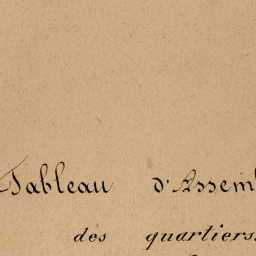 Tableau d'Assem
des quartiers.